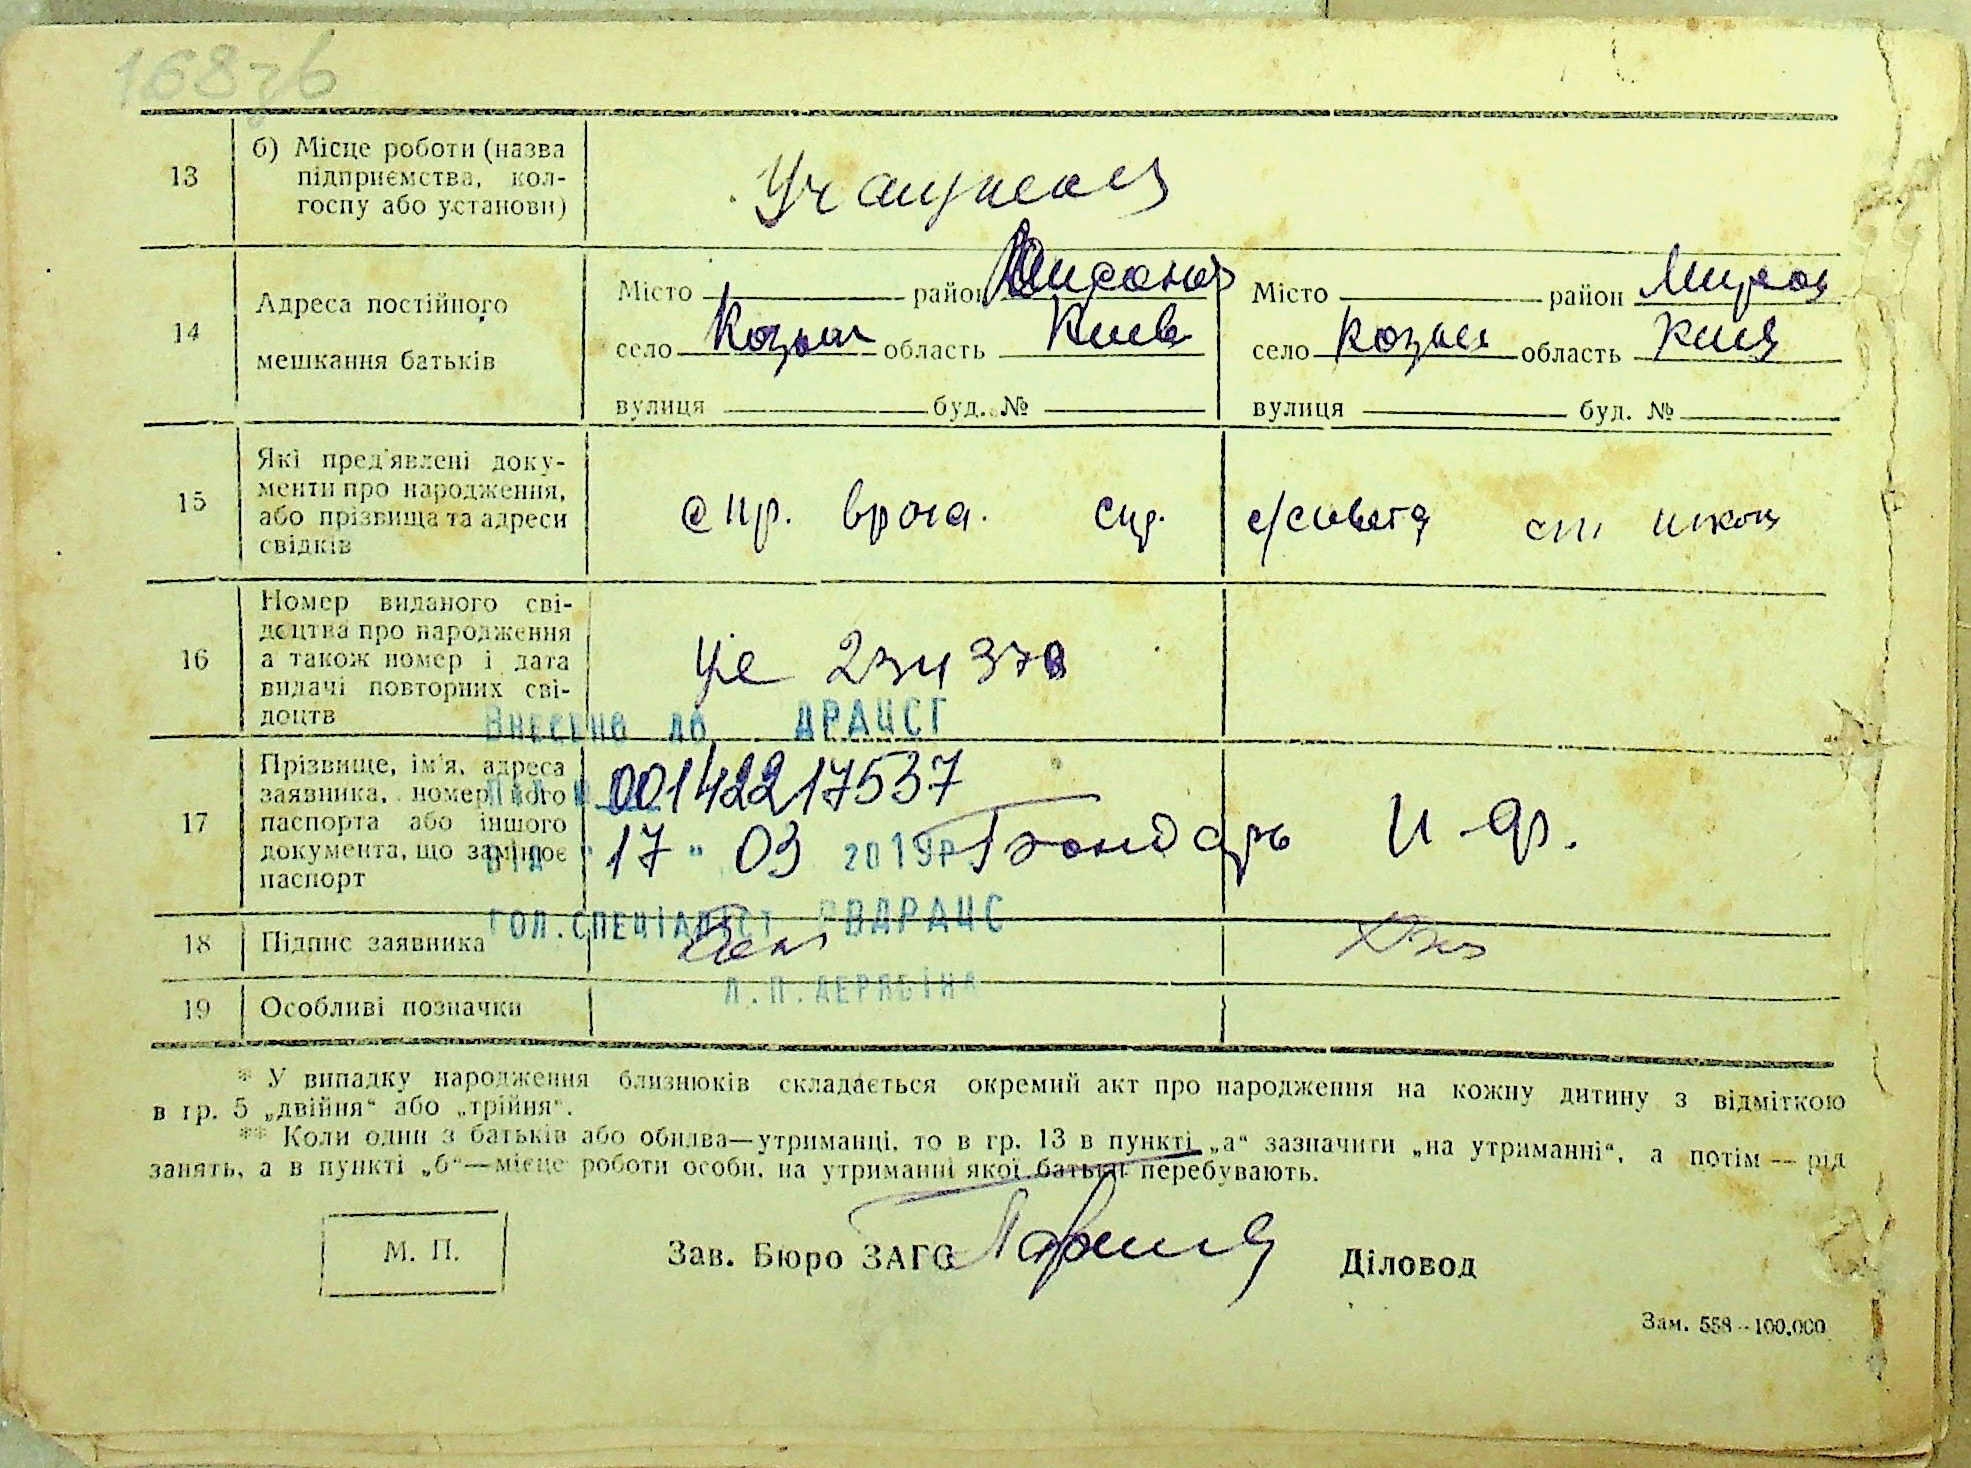 168зв
13
б) Місце роботи (назва
підприємства, кол-
госпу або установи)
14
Адреса постійного
мешкання батьків
Місто район
село Козын область Киев
вулиця буд. №
Місто район Мирон
село Козын область Киев
вулиця буд. №
15
Які пред'явлені доку-
менти про народження,
або прізвища та адреси
свідків
спр. врача. спр. с/совета
16
Номер виданого сві-
доцтва про народження
а також номер і дата
видачі повторних сві-
доцтв
234378
Внесено до ДРАЦСГ
17
Прізвище, ім'я, адреса
заявника, номер його
паспорта або іншого
документа, що замінює
паспорт
00142217537
від "17" 03 2019р
Бондарь И. Ф.
18
Підпис заявника
гол.спеціаліст РВДРАЦС
Л.П.Дерябіна
19
Особливі позначки
* У випадку народження близнюків складається окремий акт про народження на кожну дитину з відміткою
в гр. 5 „двійня“ або „трійня“.
** Коли один з батьків або обидва—утриманці, то в гр. 13 в пункті „а“ зазначити „на утриманні“, а потім — рід
занять, а в пункті „б“—місце роботи особи, на утриманні якої батьки перебувають.
М. П.
Зав. Бюро ЗАГС
Діловод
Зам. 558—100.000